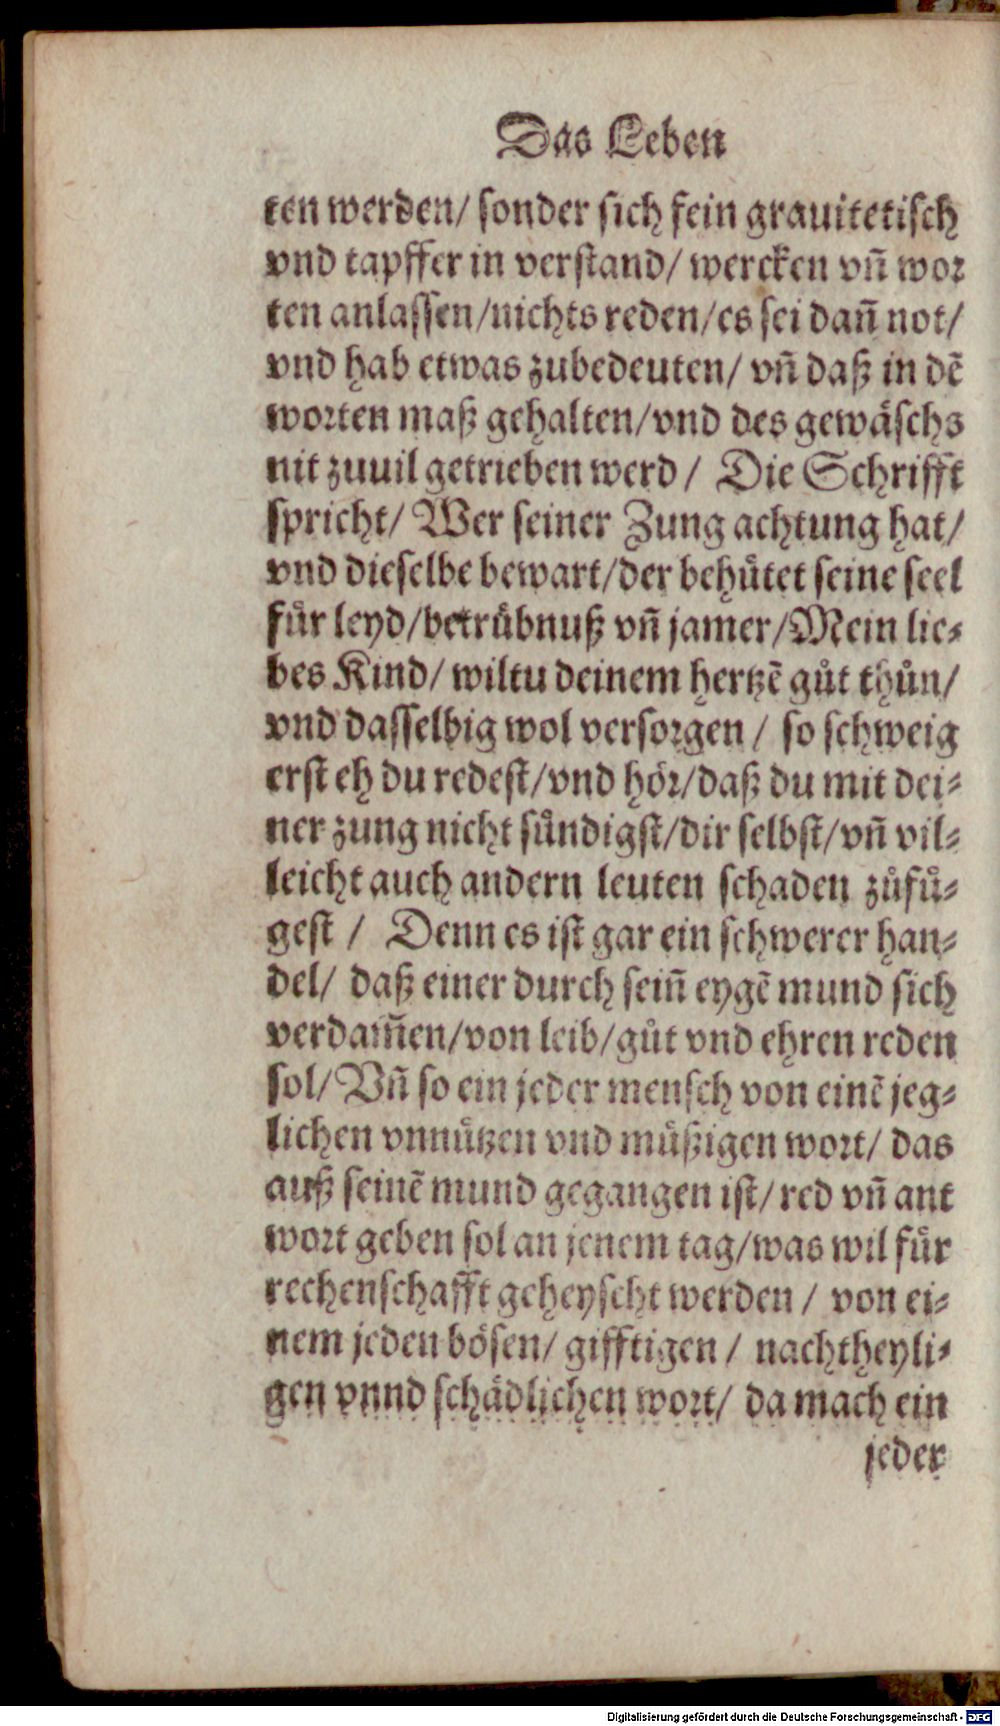 Das Leben
ten werden/ sonder sich fein grauitetisch
vnd tapffer in verstand/ wercken vñ wor
ten anlassen/nichts reden/es sei dañ not/
vnd hab etwas zubedeuten/ vñ daß in dẽ
worten maß gehalten/vnd des gewäschs
nit zuuil getrieben werd/ Die Schrifft
spricht/ Wer seiner Zung achtung hat/
vnd dieselbe bewart/der behütet seine seel
für leyd/betrübnuß vñ jamer/Mein lie⸗
bes Kind/ wiltu deinem hertzẽ gůt thůn/
vnd dasselbig wol versorgen/ so schweig
erst eh du redest/vnd hör/daß du mit dei⸗
ner zung nicht sündigst/dir selbst/vñ vil⸗
leicht auch andern leuten schaden zůfü⸗
gest/ Denn es ist gar ein schwerer han⸗
del/ daß einer durch seiñ eygẽ mund sich
verdam̃en/von leib/gůt vnd ehren reden
sol/ Vñ so ein jeder mensch von einẽ jeg⸗
lichen vnnützen vnd müßigen wort/ das
auß seinẽ mund gegangen ist/ red vñ ant
wort geben sol an jenem tag/was wil für
rechenschafft geheyscht werden/ von ei⸗
nem jeden bösen/ gifftigen/ nachtheyli⸗
gen vnnd schädlichen wort/ da mach ein
jeder
Digitalisierung gefördert durch die Deutsche Forschungsgemeinschaft - DFG